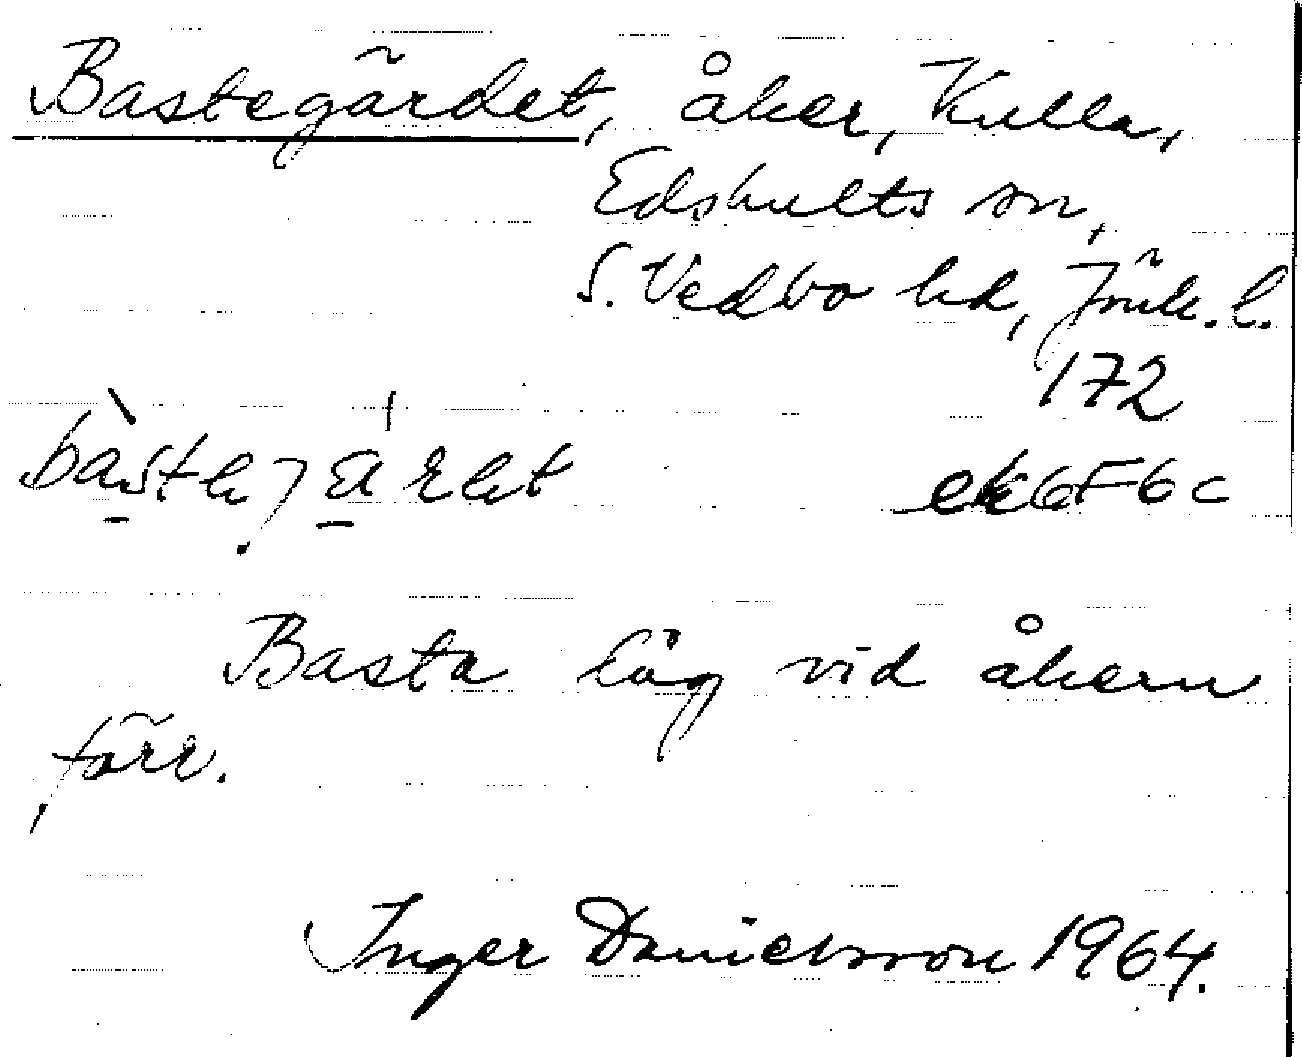 Bastegärdet, åker, Kulla,
Edshults sn,
S. Vedbo hd, Jönk. l.
172
ek 6F6c
Basta låg vid åkern
förr.
Inger Danielsson 1964.